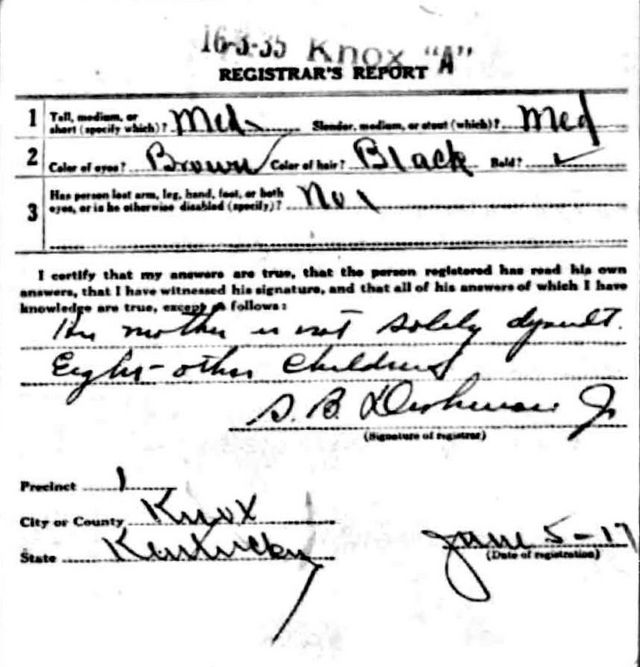 16-3-35 Knox "A"
REGISTRAR'S REPORT
1 Tall, medium, or short (specify which)? Med. Slender, medium, or stout (which)? Med
2 Color of eyes? Brown Color of hair? Black Bald? ✓
3 Has person lost arm, leg, hand, foot, or both
eyes, or is he otherwise disabled (specify)? No
I certify that my answers are true, that the person registered has read his own
answers, that I have witnessed his signature, and that all of his answers of which I have
knowledge are true, except as follows:
His mother is not solely
Eight other children
S. B. Jr
(Signature of registrar)
Precinct 1
City or County Knox
State Kentucky
June 5-17
(Date of registration)